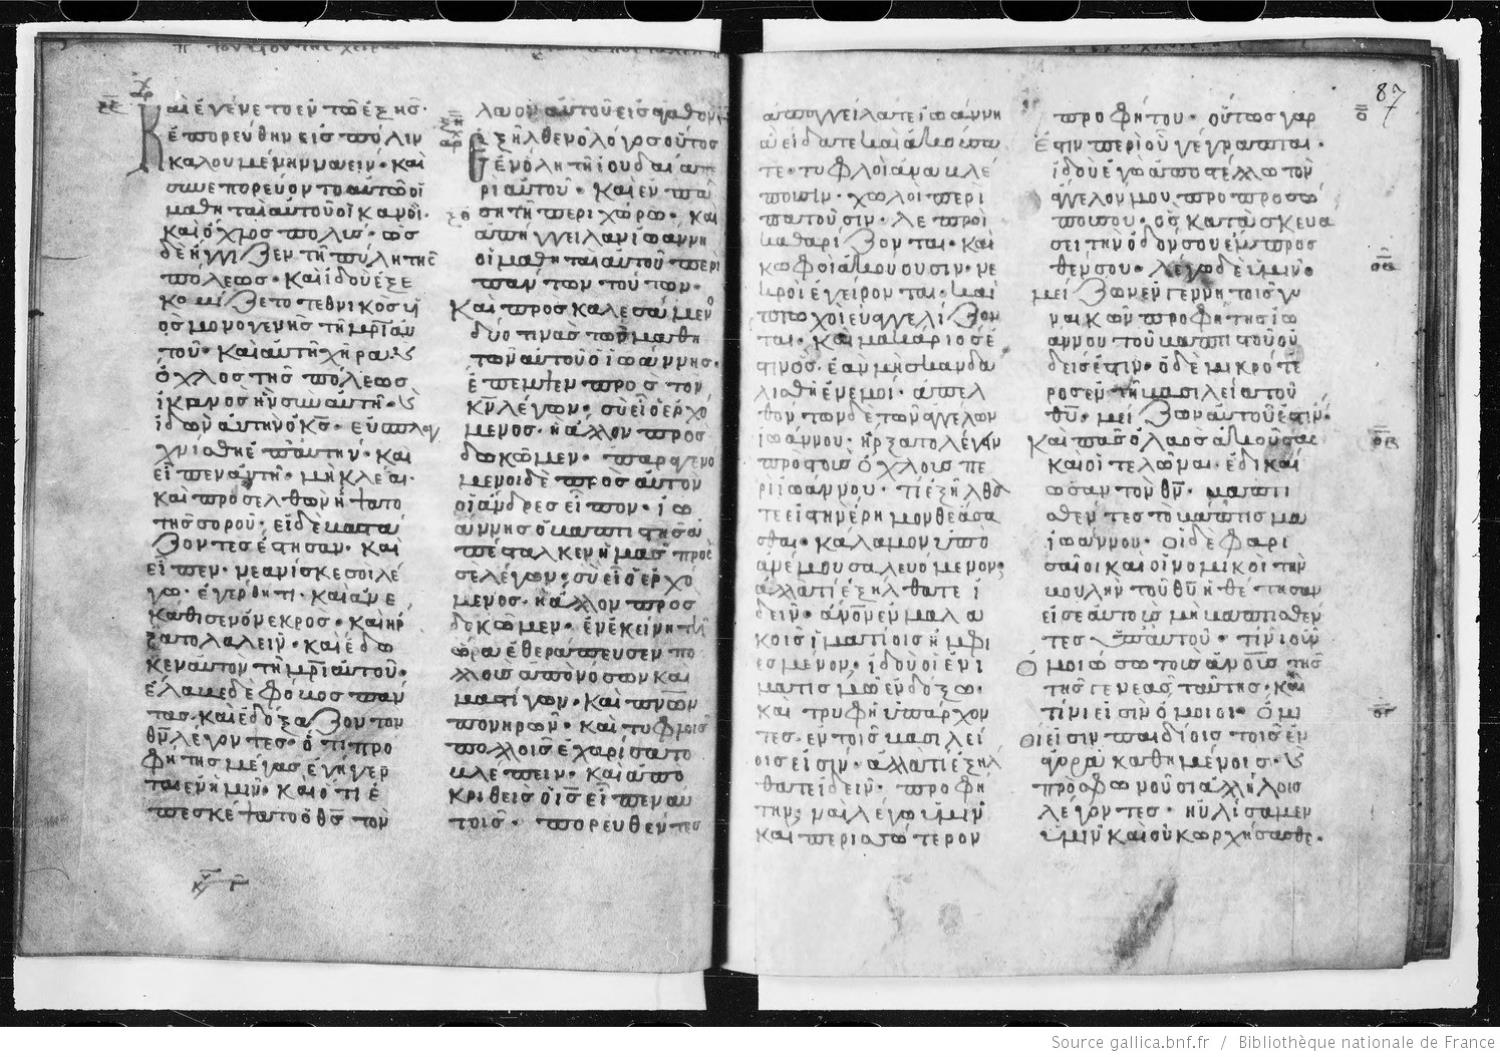 87
Καὶ ἐγένετο ἐν τῶ ἑξῆς·
ἐπορεύθην εἰς πόλιν
καλουμένην ναειν· καὶ
συνεπορεύοντο αὐτῶ οἱ
μαθηταὶ αὐτοῦ οἱκανοί·
καὶ ὄχλος πολύσ· ὡσ
δὲ ἤγγιζεν τῆ πύλη τῆς
πόλεως· καὶ ἰδοὺ ἐξε
κομίζετο τεθνικὸς υἱ
ὸς μονογενὴς τῆ μρὶ αὐ
τοῦ· καὶ αὐτὴ χήρα·
ὄχλος τῆς πόλεως
ἱκανος ἦν σὺν αὐτῆ·
ἰδὼν αὐτὴν ὁ κς· εὐσπλαγ
χνίσθη ἐπ αὐτήν· καὶ
εἶπεν αὐτῆ· μὴ κλέαι·
καὶ προσελθὼν ἥψατο
τῆς σοροῦ· εἱ δὲ βαστά
ζοντες ἔστησαν· καὶ
εἶπεν· νεανίσκε σοὶ λέ
γω· ἐγέρθητι· καὶ ἀνε
κάθισεν ὁ νεκρος· καὶ ἤρ
ξατο λαλεῖν· καὶ ἔδω
κεν αυτον τῆ μρὶ αὐτοῦ·
ἔλαβε δὲ φόβος παν
τας· καὶ ἐδόξαζον τον
θν λεγοντες· ὅτι προ
φήτης μέγας ἐγήγερ
ται ἐν ἡμῖν· καὶ ὅτι ἐ
πεσκέψατο ὁ θς τὸν
λαὸν αὐτοῦ εἰς ἀγαθόν·
ἐξῆλθεν ὁ λόγος οὗτος
ἐν ὅλη τῆ ἰουδαία πε
ρὶ αὐτοῦ· καὶ ἐν πά
ση τῆ περιχώρω· καὶ
ἀπήγγειλαν ἰωάννη
οἱ μαθηταὶ αὐτοῦ περὶ
πάντων τούτων·
Καὶ προσκαλεσάμεν
δύο τινὰς τῶν μαθη
τῶν αὐτοῦ ὁ ἰωάννης·
ἔπεμψεν πρὸς τὸν
κν λέγων· σὺ εἶ ὁ ἐρχό
μενος· ἢ ἄλλον προσ
δοκῶμεν· παραγενο
μενοι δὲ πρὸς αὐτὸν
οἱ ἄνδρες εἶπον· ἰω
άννης ὁ βαπτιστης ἀ
πέσταλκεν ἡμᾶς πρός
σε λέγων· σὺ εἶ ὁ ἐρχό
μενος· ἢ ἄλλον προσ
δοκῶμεν· ἐν ἐκείνη τῆ
ὥρα ἐθεράπευσεν πο
λλοὺς ἀπὸ νόσων καὶ
μαστίγων· καὶ πνων
πονηρῶν· καὶ τυφλοῖς
πολλοῖς ἐχαρίσατο
βλέπειν· καὶ ἀπο
κριθεὶς ὁ ις εἶπεν αὐ
τοῖς· πορευθέντες
ἀπαγγείλατε ἰωάννη
ἃ εἴδατε καὶ ἀκούσα
τε· τυφλοὶ ἀναβλέ
πουσιν· χωλοὶ περι
πατοῦσιν· λεπροὶ
καθαρίζονται· καὶ
κωφοὶ ἀκούουσιν· νε
κροὶ ἐγείρονται· καὶ
πτωχοὶ εὐαγγελίζον
ται· καὶ μακάριος ἐ
στιν ὃς ἐὰν μὴ σκανδα
λισθῆ ἐν ἐμοί· ἀπελ
θόντων δὲ τῶν ἀγγέλων
ἰωάννου· ἤρξατο λέγειν
πρὸς τοὺς ὄχλους πε
ρὶ ἰωάννου· τί ἐξήλθα
τε εἰς τὴν ἔρημον θεάσα
σθαι· κάλαμον ὑπὸ
ἀνέμου σαλευόμενον·
ἀλλὰ τί ἐξήλθατε ἰ
δεῖν· ἀνον ἐν μαλα
κοῖς ἱματίοις ἠμφι
εσμένον· ἰδοὺ οἱ ἐν ἱ
ματισμῶ ἐνδόξω·
καὶ τρυφῆ ὑπάρχον
τες· ἐν τοῖς βασιλεί
οις εἰσίν· ἀλλὰ τί ἐξήλ
θατε ἰδεῖν· προφή
την; ναὶ λέγω ὑμῖν
καὶ περισσότερον
προφήτου· οὗτος γάρ
ἐστιν περὶ οὗ γέγραπται·
ἰδοὺ ἐγὼ ἀποστέλλω τὸν
ἄγγελόν μου προ προσώ
που σου· ὃς κατασκευά
σει τὴν ὁδόν σου ἔμπροσ
θέν σου· λέγω δὲ ὑμῖν·
μείζων ἐν γεννητοῖς γυ
ναικῶν προφήτης ἰω
άννου τοῦ βαπτιστοῦ οὐ
δείς ἐστιν· ὁ δὲ μικρότε
ρος ἐν τῆ βασιλεία τοῦ
θυ· μείζων αὐτοῦ ἐστίν·
Καὶ πᾶς ὁ λαὸς ἀκούσας
καὶ οἱ τελῶναι· ἐδικαί
ωσαν τὸν θν· βαπτι
σθέντες τὸ βάπτισμα
ἰωάννου· οἱ δὲ φαρι
σαῖοι καὶ οἱ νομικοὶ τὴν
βουλὴν τοῦ θυ ἠθέτησαν
εἰς ἑαυτοὺς μὴ βαπτισθέν
τες ὑπ αὐτοῦ· τίνι οὖν
ὁμοιώσω τοὺς ἀνους τῆς
τῆς γενεᾶς ταύτης· καὶ
τίνι εἰσὶν ὅμοιοι· ὅμοι
οι εἰσιν παιδίοις τοῖς ἐν
ἀγορᾶ καθημένοις·
προσφωνοῦσι ἀλλήλοις
λέγοντες· ηὐλίσαμεν
ὑμῖν καὶ οὐκ ὠρχήσασθε·
Source gallica.bnf.fr / Bibliothèque nationale de France